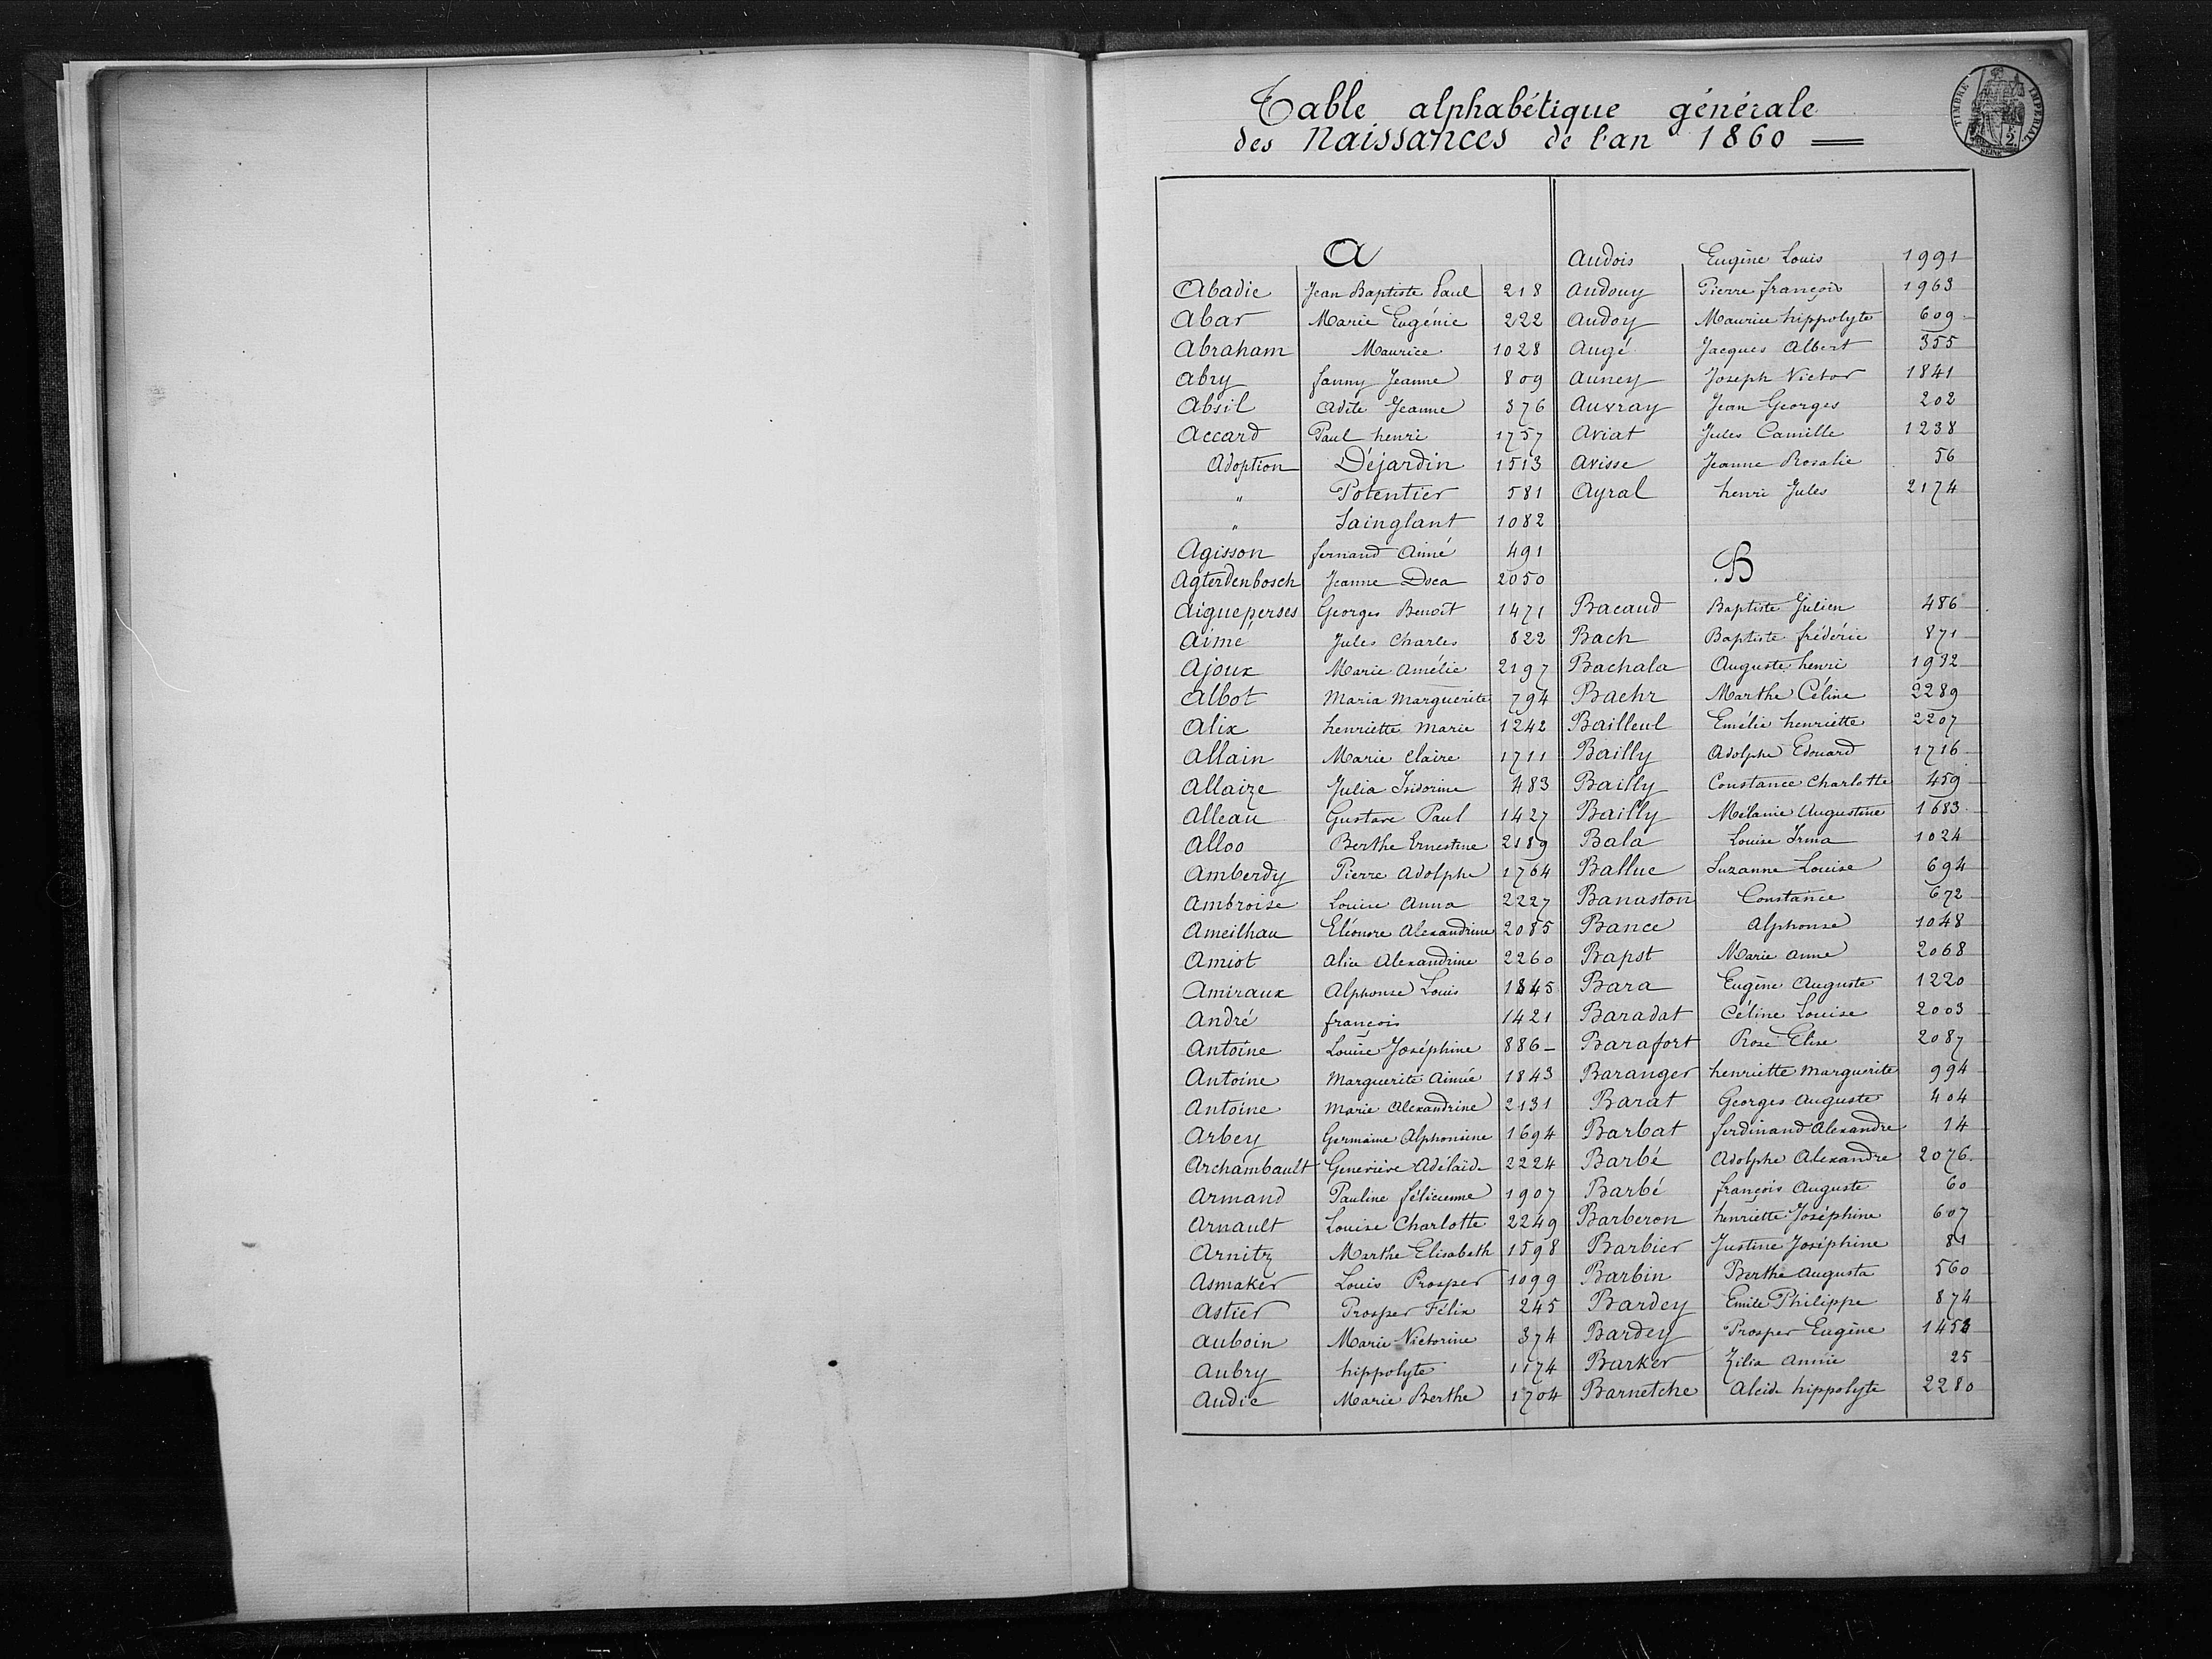 Table alphabétique générale
des Naissances de l'an 1860
TIMBRE IMPÉRIAL
SEINE
A
Abadie Jean Baptiste Paul 218
Abar Marie Eugénie 222
Abraham Maurice 1028
Abry fanny Jeanne 809
Absil Adèle Jeanne 376
Accard Paul henri 1757
Adoption Déjardin 1513
" Potentier 581
" Sainglant 1082
Agisson fernand Aimé 491
Agterdenbosch Jeanne Doca 2050
Aigueperses Georges Benoît 1471
Aimé Jules Charles 822
Ajoux Marie Amélie 2197
Albot Maria Marguerite 794
Alix henriette Marie 1242
Allain Marie Claire 1711
Allaize Julia Isidorine 483
Alleau Gustave Paul 1427
Alloo Berthe Ernestine 2189
Amberdy Pierre Adolphe 1764
Ambroise Louise Anna 2227
Ameilhau Eléonore Alexandrine 2085
Amiot Alice Alexandrine 2260
Amiraux Alphonse Louis 1845
André françois 1421
Antoine Louise Joséphine 886
Antoine Marguerite Aimée 1843
Antoine Marie Alexandrine 2131
Arbey Germaine Alphonsine 1694
Archambault Geneviève Adélaïde 2224
Armand Pauline félicienne 1907
Arnault Louise Charlotte 2249
Arnitz Marthe Elisabeth 1598
Asmaker Louis Prosper 1099
Astier Prosper Félix 245
Auboin Marie Victorine 374
Aubry hippolyte 1174
Audic Marie Berthe 1704
Audois Eugène Louis 1991
Audouy Pierre françois 1963
Audoy Maurice hippolyte 609
Augé Jacques Albert 355
Auney Joseph Victor 1841
Auvray Jean Georges 202
Aviat Jules Camille 1238
Avisse Jeanne Rosalie 56
Ayral henri Jules 2174
B
Bacaud Baptiste Julien 486
Bach Baptiste frédéric 871
Bachala Auguste henri 1932
Baehr Marthe Céline 2289
Bailleul Emélie henriette 2207
Bailly Adolphe Edouard 1716
Bailly Constance Charlotte 459
Bailly Mélanie Augustine 1683
Bala Louise Irma 1024
Balluc Suzanne Louise 694
Banaston Constance 672
Bance Alphonse 1048
Bapst Marie Anne 2068
Bara Eugène Auguste 1220
Baradat Céline Louise 2003
Barafort Rose Elise 2087
Baranger henriette Marguerite 994
Barat Georges Auguste 404
Barbat ferdinand Alexandre 14
Barbé Adolphe Alexandre 2076
Barbé françois Auguste 60
Barberon henriette Joséphine 607
Barbier Justine Joséphine 81
Barbin Berthe Augusta 560
Bardey Emile Philippe 874
Bardey Prosper Eugène 1453
Barker Zilia Annie 25
Barnetche Alcide hippolyte 2280